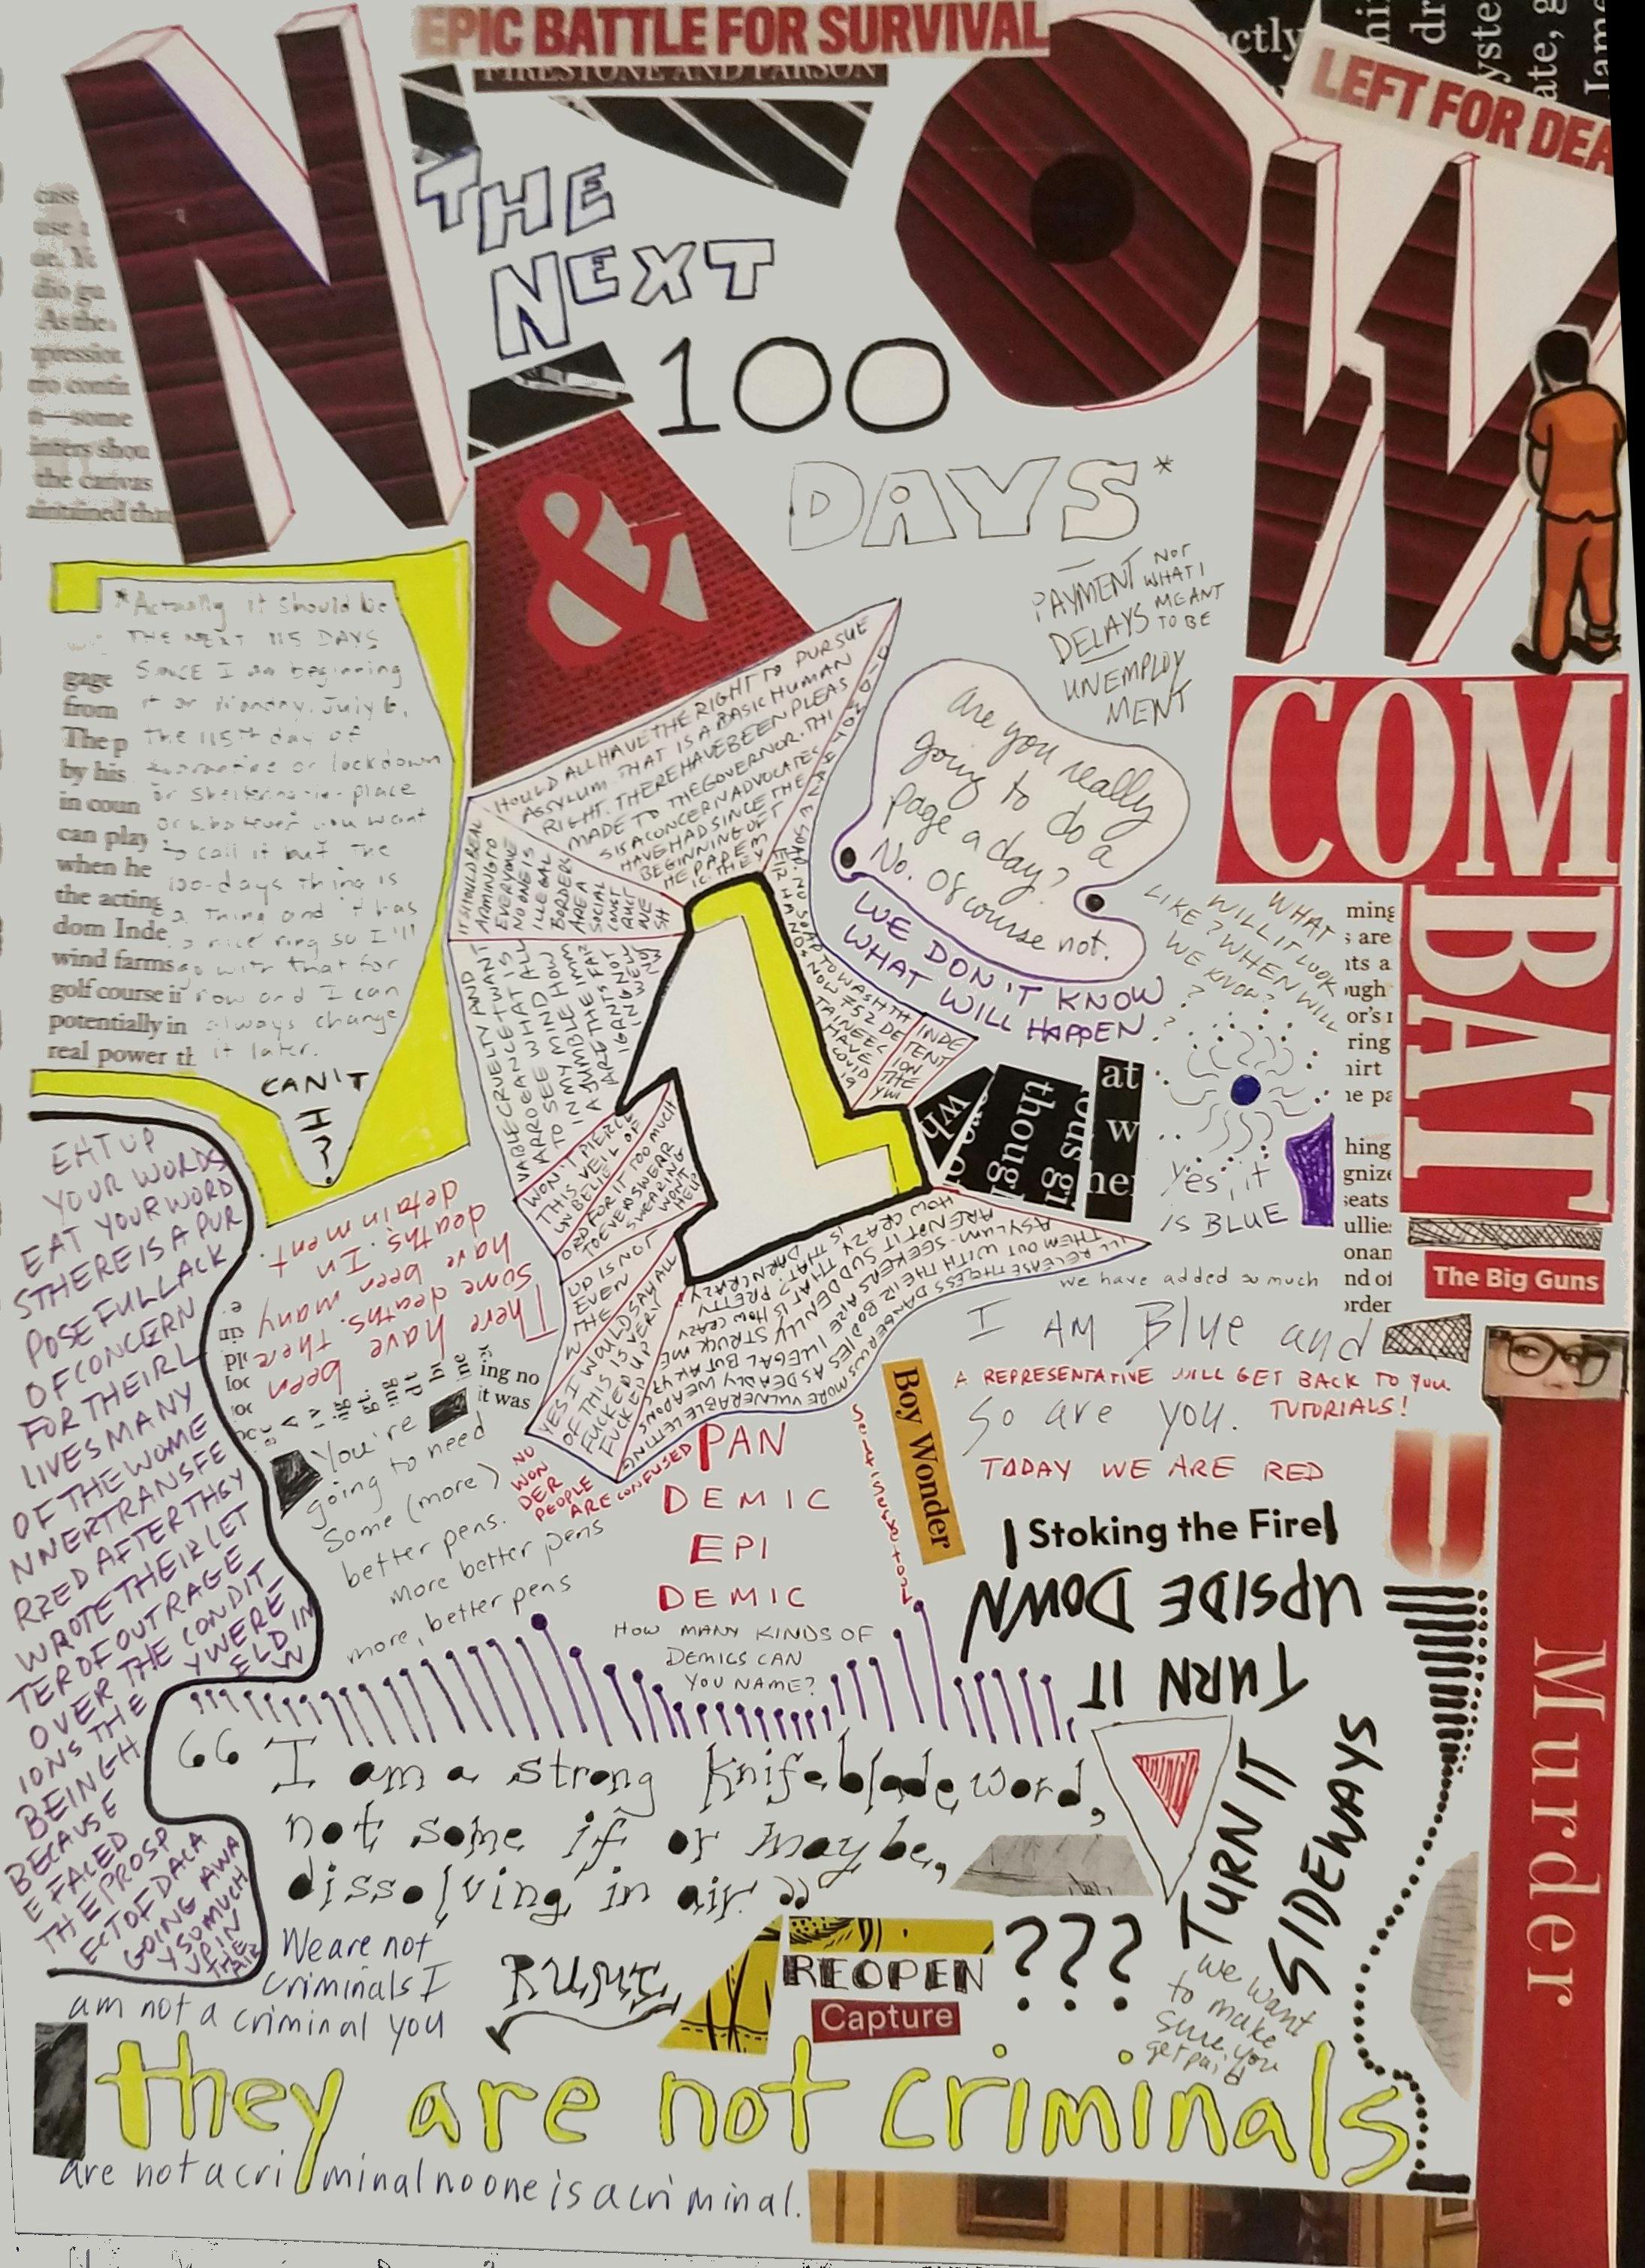 EPIC BATTLE FOR SURVIVAL
FIRESTONE AND PARSON
LEFT FOR DEA
NOW
THE
NEXT
100
DAYS*
&
ctly
yste
ate, g
Jame
cass
use
dio ga
As the
n—some
inters shou
the canvas
aintained than
*Actually it should be
THE NEXT 115 DAYS
SINCE I am beginning
it on Monday, July 6,
the 115th day of
quarantine or lockdown
or sheltering-in-place
or whatever you want
to call it but the
100-days thing is
a thing and it has
a nice ring so I'll
go with that for
now and I can
always change
it later.
CAN'T
I?
gage
from
The p
by his
in coun
can play
when he
the acting
dom Inde
wind farms
golf course i
potentially in
real power th
PAYMENT NOT
WHAT I
DELAYS MEANT
TO BE
UNEMPLOY
MENT
COM
BAT
are you really
going to do a
page a day?
No. Of course not.
WE DON'T KNOW
WHAT WILL HAPPEN
WHAT
WILL IT LOOK
LIKE? WHEN WILL
WE KNOW?
HOULD ALL HAVE THE RIGHT TO PURSUE
ASYLUM THAT IS A BASIC HUMAN
RIGHT. THERE HAVE BEEN PLEAS
MADE TO THE GOVERNOR. THI
S IS A CONCERN ADVOCATES
HAVE HAD SINCE THE
BEGINNING OF T
HE PANDEM
IC. THEY
IT SHOULD BE AL
ARMING TO
EVERYONE
NO ONE IS
ILLEGAL
BORDERS
ARE A
SOCIAL
CONST
RUCT
WE
SH
VABLE CRUELTY AND
ARROGANCE I WANT
TO SEE WHAT ALL
IN MY MIND HOW
A JUMBLE IMM
ARE THE FAT
IGANTS NOT
WON'T PIERCE
THIS VEIL OF
UNBELIE
ORD FOR IT TOO MUCH
TO EVER SWEAR
SWEARING
WON'T
HELP
UP IS NOT
EVEN
THE
W
YES I WOULD SAY ALL
OF THIS IS VERY
FUCKED UP
FUCKED
AP TO WASH TH
EIR HANDS NOW 752 DE
TAINEES
HAVE
COVID
19
IN DE
TENT
ION
THE
YW
1
wh
though
ous gi
at
w
he
Yes, it
IS BLUE
ming
s are
nts a
ough
or's r
ring
hirt
he pa
hing
gnize
seats
ullie
onan
nd of
order
The Big Guns
we have added so much
I AM Blue and
A REPRESENTATIVE WILL GET BACK TO YOU
So are you. TUTORIALS!
TODAY WE ARE RED
Stoking the Fire
UPSIDE DOWN
TURN IT
TURN IT
SIDEWAYS
Boy Wonder
Murder
EAT UP
YOUR WORDS
EAT YOUR WORD
S THERE IS A PUR
POSEFUL LACK
OF CONCERN
FOR THEIR L
IVES MANY
OF THE WOME
N WERE TRANSFE
RRED AFTER THEY
WROTE THEIR LET
TER OF OUTRAGE
OVER THE CONDIT
IONS THEY WERE
BEING HELD IN
BECAUSE W
E FACED
THE PROSP
ECT OF DACA
GOING AWA
Y SO MUCH
UP IN
THE
AIR
There have been
some deaths. there
have been many
deaths. In
detainment.
ing no
it was
You're
going to need
some (more)
better pens.
more better pens
more, better pens
NO
WON
DER
PEOPLE
ARE CONFUSED
PAN
DEMIC
EPI
DEMIC
HOW MANY KINDS OF
DEMICS CAN
YOU NAME?
“I am a strong knifeblade word,
not some if or maybe,
dissolving in air.”
RUMI
REOPEN ???
Capture
we want
to make
sure you
get paid
We are not
criminals I
am not a criminal you
they are not criminals
are not a criminal no one is a criminal.